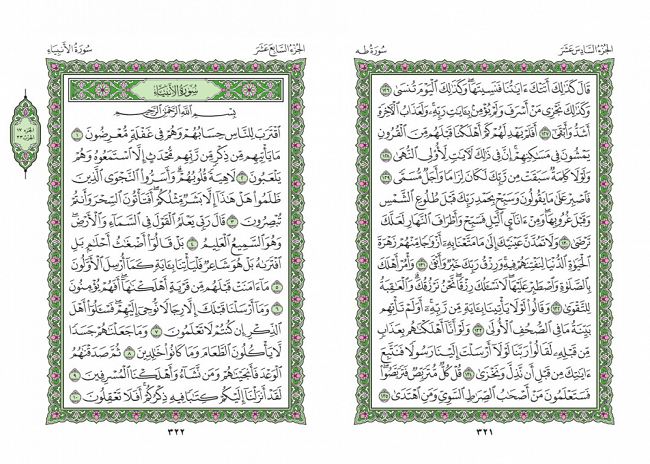 الجزء السادس عشر
سورة طه
قَالَ كَذَٰلِكَ أَتَتْكَ ءَايَٰتُنَا فَنَسِيتَهَا ۖ وَكَذَٰلِكَ ٱلْيَوْمَ تُنسَىٰ ١٢٦
وَكَذَٰلِكَ نَجْزِى مَنْ أَسْرَفَ وَلَمْ يُؤْمِنۢ بِـَٔايَٰتِ رَبِّهِۦ ۚ وَلَعَذَابُ ٱلْءَاخِرَةِ
أَشَدُّ وَأَبْقَىٰٓ ١٢٧ أَفَلَمْ يَهْدِ لَهُمْ كَمْ أَهْلَكْنَا قَبْلَهُم مِّنَ ٱلْقُرُونِ
يَمْشُونَ فِى مَسَٰكِنِهِمْ ۗ إِنَّ فِى ذَٰلِكَ لَءَايَٰتٍ لِّأُو۟لِى ٱلنُّهَىٰ ١٢٨
وَلَوْلَا كَلِمَةٌ سَبَقَتْ مِن رَّبِّكَ لَكَانَ لِزَامًا وَأَجَلٌ مُّسَمًّى ١٢٩
فَٱصْبِرْ عَلَىٰ مَا يَقُولُونَ وَسَبِّحْ بِحَمْدِ رَبِّكَ قَبْلَ طُلُوعِ ٱلشَّمْسِ
وَقَبْلَ غُرُوبِهَا ۖ وَمِنْ ءَانَآئِ ٱلَّيْلِ فَسَبِّحْ وَأَطْرَافَ ٱلنَّهَارِ لَعَلَّكَ
تَرْضَىٰ ١٣٠ وَلَا تَمُدَّنَّ عَيْنَيْكَ إِلَىٰ مَا مَتَّعْنَا بِهِۦٓ أَزْوَٰجًا مِّنْهُمْ زَهْرَةَ
ٱلْحَيَوٰةِ ٱلدُّنْيَا لِنَفْتِنَهُمْ فِيهِ ۚ وَرِزْقُ رَبِّكَ خَيْرٌ وَأَبْقَىٰ ١٣١ وَأْمُرْ أَهْلَكَ
بِٱلصَّلَوٰةِ وَٱصْطَبِرْ عَلَيْهَا ۖ لَا نَسْـَٔلُكَ رِزْقًا ۖ نَّحْنُ نَرْزُقُكَ ۗ وَٱلْعَٰقِبَةُ
لِلتَّقْوَىٰ ١٣٢ وَقَالُوا۟ لَوْلَا يَأْتِينَا بِـَٔايَةٍ مِّن رَّبِّهِۦٓ ۚ أَوَلَمْ تَأْتِهِم
بَيِّنَةُ مَا فِى ٱلصُّحُفِ ٱلْأُولَىٰ ١٣٣ وَلَوْ أَنَّآ أَهْلَكْنَٰهُم بِعَذَابٍ
مِّن قَبْلِهِۦ لَقَالُوا۟ رَبَّنَا لَوْلَآ أَرْسَلْتَ إِلَيْنَا رَسُولًا فَنَتَّبِعَ
ءَايَٰتِكَ مِن قَبْلِ أَن نَّذِلَّ وَنَخْزَىٰ ١٣٤ قُلْ كُلٌّ مُّتَرَبِّصٌ فَتَرَبَّصُوا۟ ۖ
فَسَتَعْلَمُونَ مَنْ أَصْحَٰبُ ٱلصِّرَٰطِ ٱلسَّوِىِّ وَمَنِ ٱهْتَدَىٰ ١٣٥
٣٢١
الجزء السابع عشر
سورة الأنبياء
سورة الأنبياء
بِسْمِ ٱللَّهِ ٱلرَّحْمَٰنِ ٱلرَّحِيمِ
ٱقْتَرَبَ لِلنَّاسِ حِسَابُهُمْ وَهُمْ فِى غَفْلَةٍ مُّعْرِضُونَ ١
مَا يَأْتِيهِم مِّن ذِكْرٍ مِّن رَّبِّهِم مُّحْدَثٍ إِلَّا ٱسْتَمَعُوهُ وَهُمْ
يَلْعَبُونَ ٢ لَاهِيَةً قُلُوبُهُمْ ۗ وَأَسَرُّوا۟ ٱلنَّجْوَى ٱلَّذِينَ
ظَلَمُوا۟ هَلْ هَٰذَآ إِلَّا بَشَرٌ مِّثْلُكُمْ ۖ أَفَتَأْتُونَ ٱلسِّحْرَ وَأَنتُمْ
تُبْصِرُونَ ٣ قَالَ رَبِّى يَعْلَمُ ٱلْقَوْلَ فِى ٱلسَّمَآءِ وَٱلْأَرْضِ ۖ
وَهُوَ ٱلسَّمِيعُ ٱلْعَلِيمُ ٤ بَلْ قَالُوٓا۟ أَضْغَٰثُ أَحْلَٰمٍۭ بَلِ
ٱفْتَرَىٰهُ بَلْ هُوَ شَاعِرٌ فَلْيَأْتِنَا بِـَٔايَةٍ كَمَآ أُرْسِلَ ٱلْأَوَّلُونَ
٥ مَآ ءَامَنَتْ قَبْلَهُم مِّن قَرْيَةٍ أَهْلَكْنَٰهَآ ۖ أَفَهُمْ يُؤْمِنُونَ
٦ وَمَآ أَرْسَلْنَا قَبْلَكَ إِلَّا رِجَالًا نُّوحِىٓ إِلَيْهِمْ ۖ فَسْـَٔلُوٓا۟ أَهْلَ
ٱلذِّكْرِ إِن كُنتُمْ لَا تَعْلَمُونَ ٧ وَمَا جَعَلْنَٰهُمْ جَسَدًا
لَّا يَأْكُلُونَ ٱلطَّعَامَ وَمَا كَانُوا۟ خَٰلِدِينَ ٨ ثُمَّ صَدَقْنَٰهُمُ
ٱلْوَعْدَ فَأَنجَيْنَٰهُمْ وَمَن نَّشَآءُ وَأَهْلَكْنَا ٱلْمُسْرِفِينَ ٩
لَقَدْ أَنزَلْنَآ إِلَيْكُمْ كِتَٰبًا فِيهِ ذِكْرُكُمْ ۖ أَفَلَا تَعْقِلُونَ ١٠
٣٢٢
الجزء ١٧
الحزب ٣٣